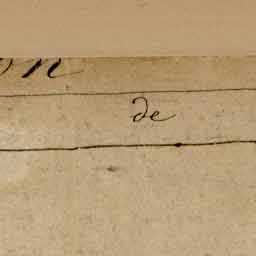 on
de